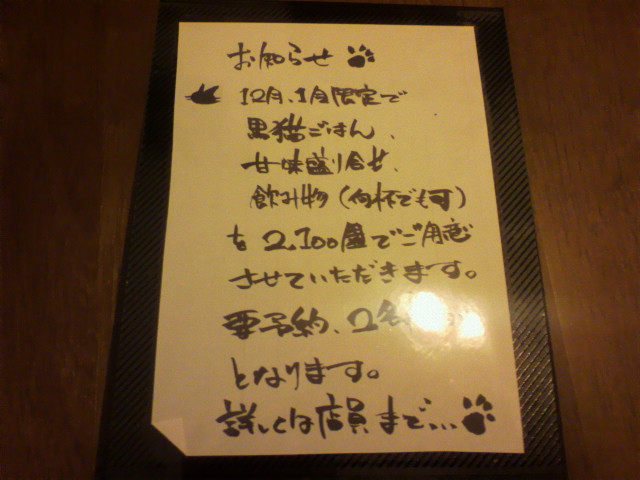 お知らせ
12月、1月限定で
黒猫ごはん、
甘味盛り合せ、
飲み物(何杯でも可)
を 2,100圓でご用意
させていただきます。
要予約、2名
となります。
詳しくは店員まで...